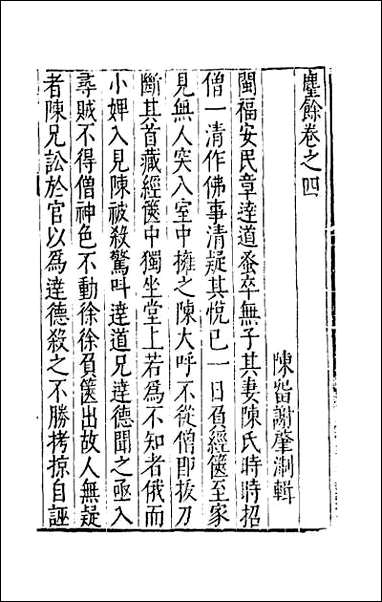 麈餘卷之四
陳畱謝肇淛輯
閩福安民章達道蚤卒無子其妻陳氏時時招
僧一清作佛事清疑其悅已一日負經篋至家
見無人突入室中擁之陳大呼不從僧即拔刀
斷其首藏經篋中獨坐堂上若爲不知者俄而
小婢入見陳被殺驚叫達道兄達德聞之亟入
尋賊不得僧神色不動徐徐負篋出故人無疑
者陳兄訟於官以爲達德殺之不勝拷掠自誣